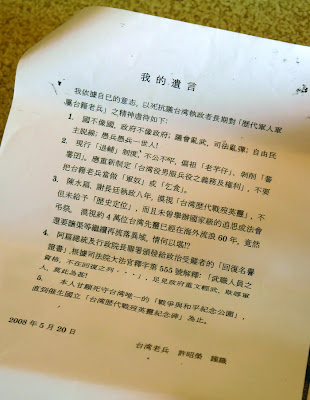 我的遺言
我依據自已的意志，以死抗議台湾執政者長期對「歷代軍人軍
屬台籍老兵」之精神虐待如下：
1. 國不像國，政府不像政府；議會亂武，司法亂彈；自由民
主脫線；愚兵愚兵一世人！
2. 現行「退輔」制度，不公不平，偏袒「老芋仔」，剝削「蕃
薯囝」。應重新制定「台湾役男服兵役之義務及權利」，不要
把台籍老兵當做「軍奴」或「乞食」。
3. 陳水扁、謝長廷執政八年，漠視「台湾歷代戰歿英靈」，不
但未給予「歷史定位」，而且未曾舉辦國家級的追思或法會
弔祭，漠視約4萬位台湾先賢已經在海外流浪60年，竟然
還要讓渠等繼續再流落異域，情何以堪！？
4. 阿扁總統及行政院長願署頒發給政治受難者的「回復名譽
證書」根據司法院大法官釋字第555號解釋：「武職人員之
資格，不在回復之列・・・」，足見政府重文輕武，欺辱軍
人，莫此為甚！
5. 本人甘願死守台湾唯一的「戰爭與和平紀念公園」，
直到催生國立「台湾歷代戰歿英靈紀念碑」為止。
2008年5月20日
台湾老兵 許昭榮